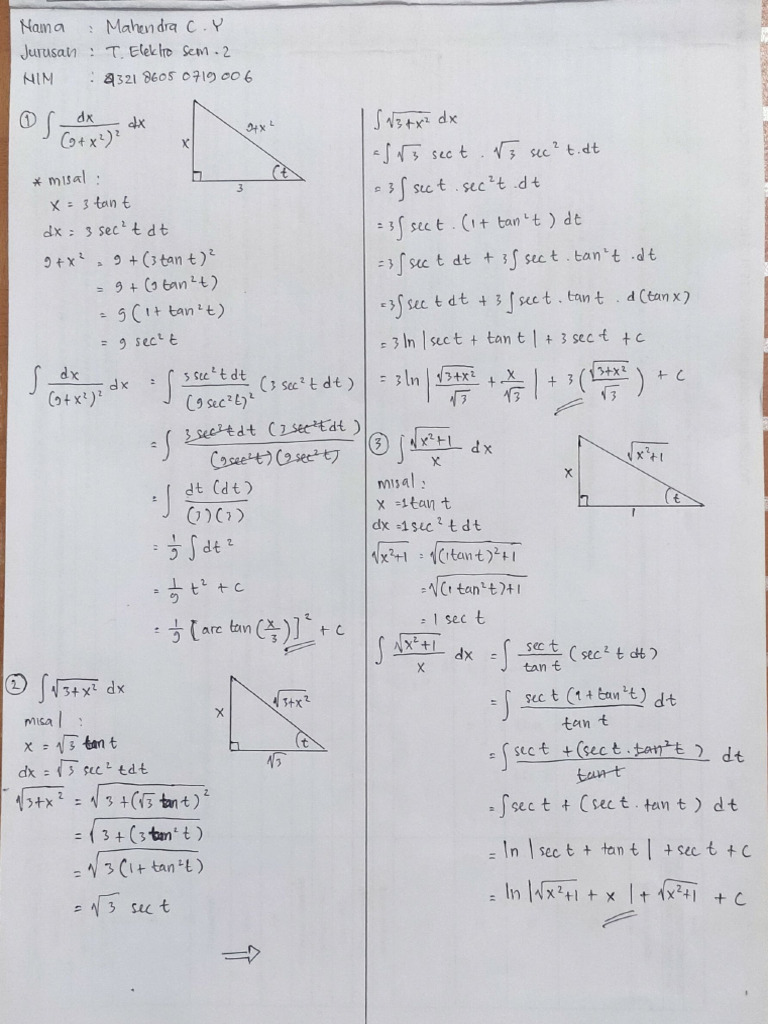 Nama : Mahendra C. Y
Jurusan : T. Elektro Sem. 2
NIM : 9321 8605 0719 006
① ∫ dx/(9+x²)² dx
9+x²
x
t
3
* misal :
x = 3 tan t
dx = 3 sec² t dt
9+x² = 9 + (3 tan t)²
= 9 + (9 tan² t)
= 9 (1 + tan² t)
= 9 sec² t
∫ dx/(9+x²)² dx = ∫ 3 sec² t dt/(9 sec² t)² (3 sec² t dt)
= ∫ 3 sec² t dt (3 sec² t dt)/(9 sec² t)(9 sec² t)
= ∫ dt (dt)/(3)(3)
= 1/9 ∫ dt²
= 1/9 t² + c
= 1/9 [arc tan (x/3)]² + c
② ∫ √(3+x²) dx
√(3+x²)
x
t
√3
misal :
x = √3 tan t
dx = √3 sec² t dt
√(3+x²) = √(3 + (√3 tan t)²)
= √(3 + (3 tan² t))
= √(3 (1 + tan² t))
= √3 sec t
⇒
∫ √(3+x²) dx
= ∫ √3 sec t . √3 sec² t . dt
= 3∫ sec t . sec² t . dt
= 3∫ sec t . (1 + tan² t) dt
= 3∫ sec t dt + 3∫ sec t . tan² t . dt
= 3∫ sec t dt + 3∫ sec t . tan t . d(tan x)
= 3 ln |sec t + tan t| + 3 sec t + c
= 3 ln |√(3+x²)/√3 + x/√3| + 3 (√(3+x²)/√3) + c
③ ∫ √(x²+1)/x dx
√(x²+1)
x
t
1
misal :
x = 1 tan t
dx = 1 sec² t dt
√(x²+1) = √((1 tan t)² + 1)
= √((1 tan² t) + 1)
= 1 sec t
∫ √(x²+1)/x dx = ∫ sec t/tan t (sec² t dt)
= ∫ sec t (1 + tan² t)/tan t dt
= ∫ sec t + (sec t . tan² t)/tan t dt
= ∫ sec t + (sec t . tan t) dt
= ln |sec t + tan t| + sec t + c
= ln |√(x²+1) + x| + √(x²+1) + c